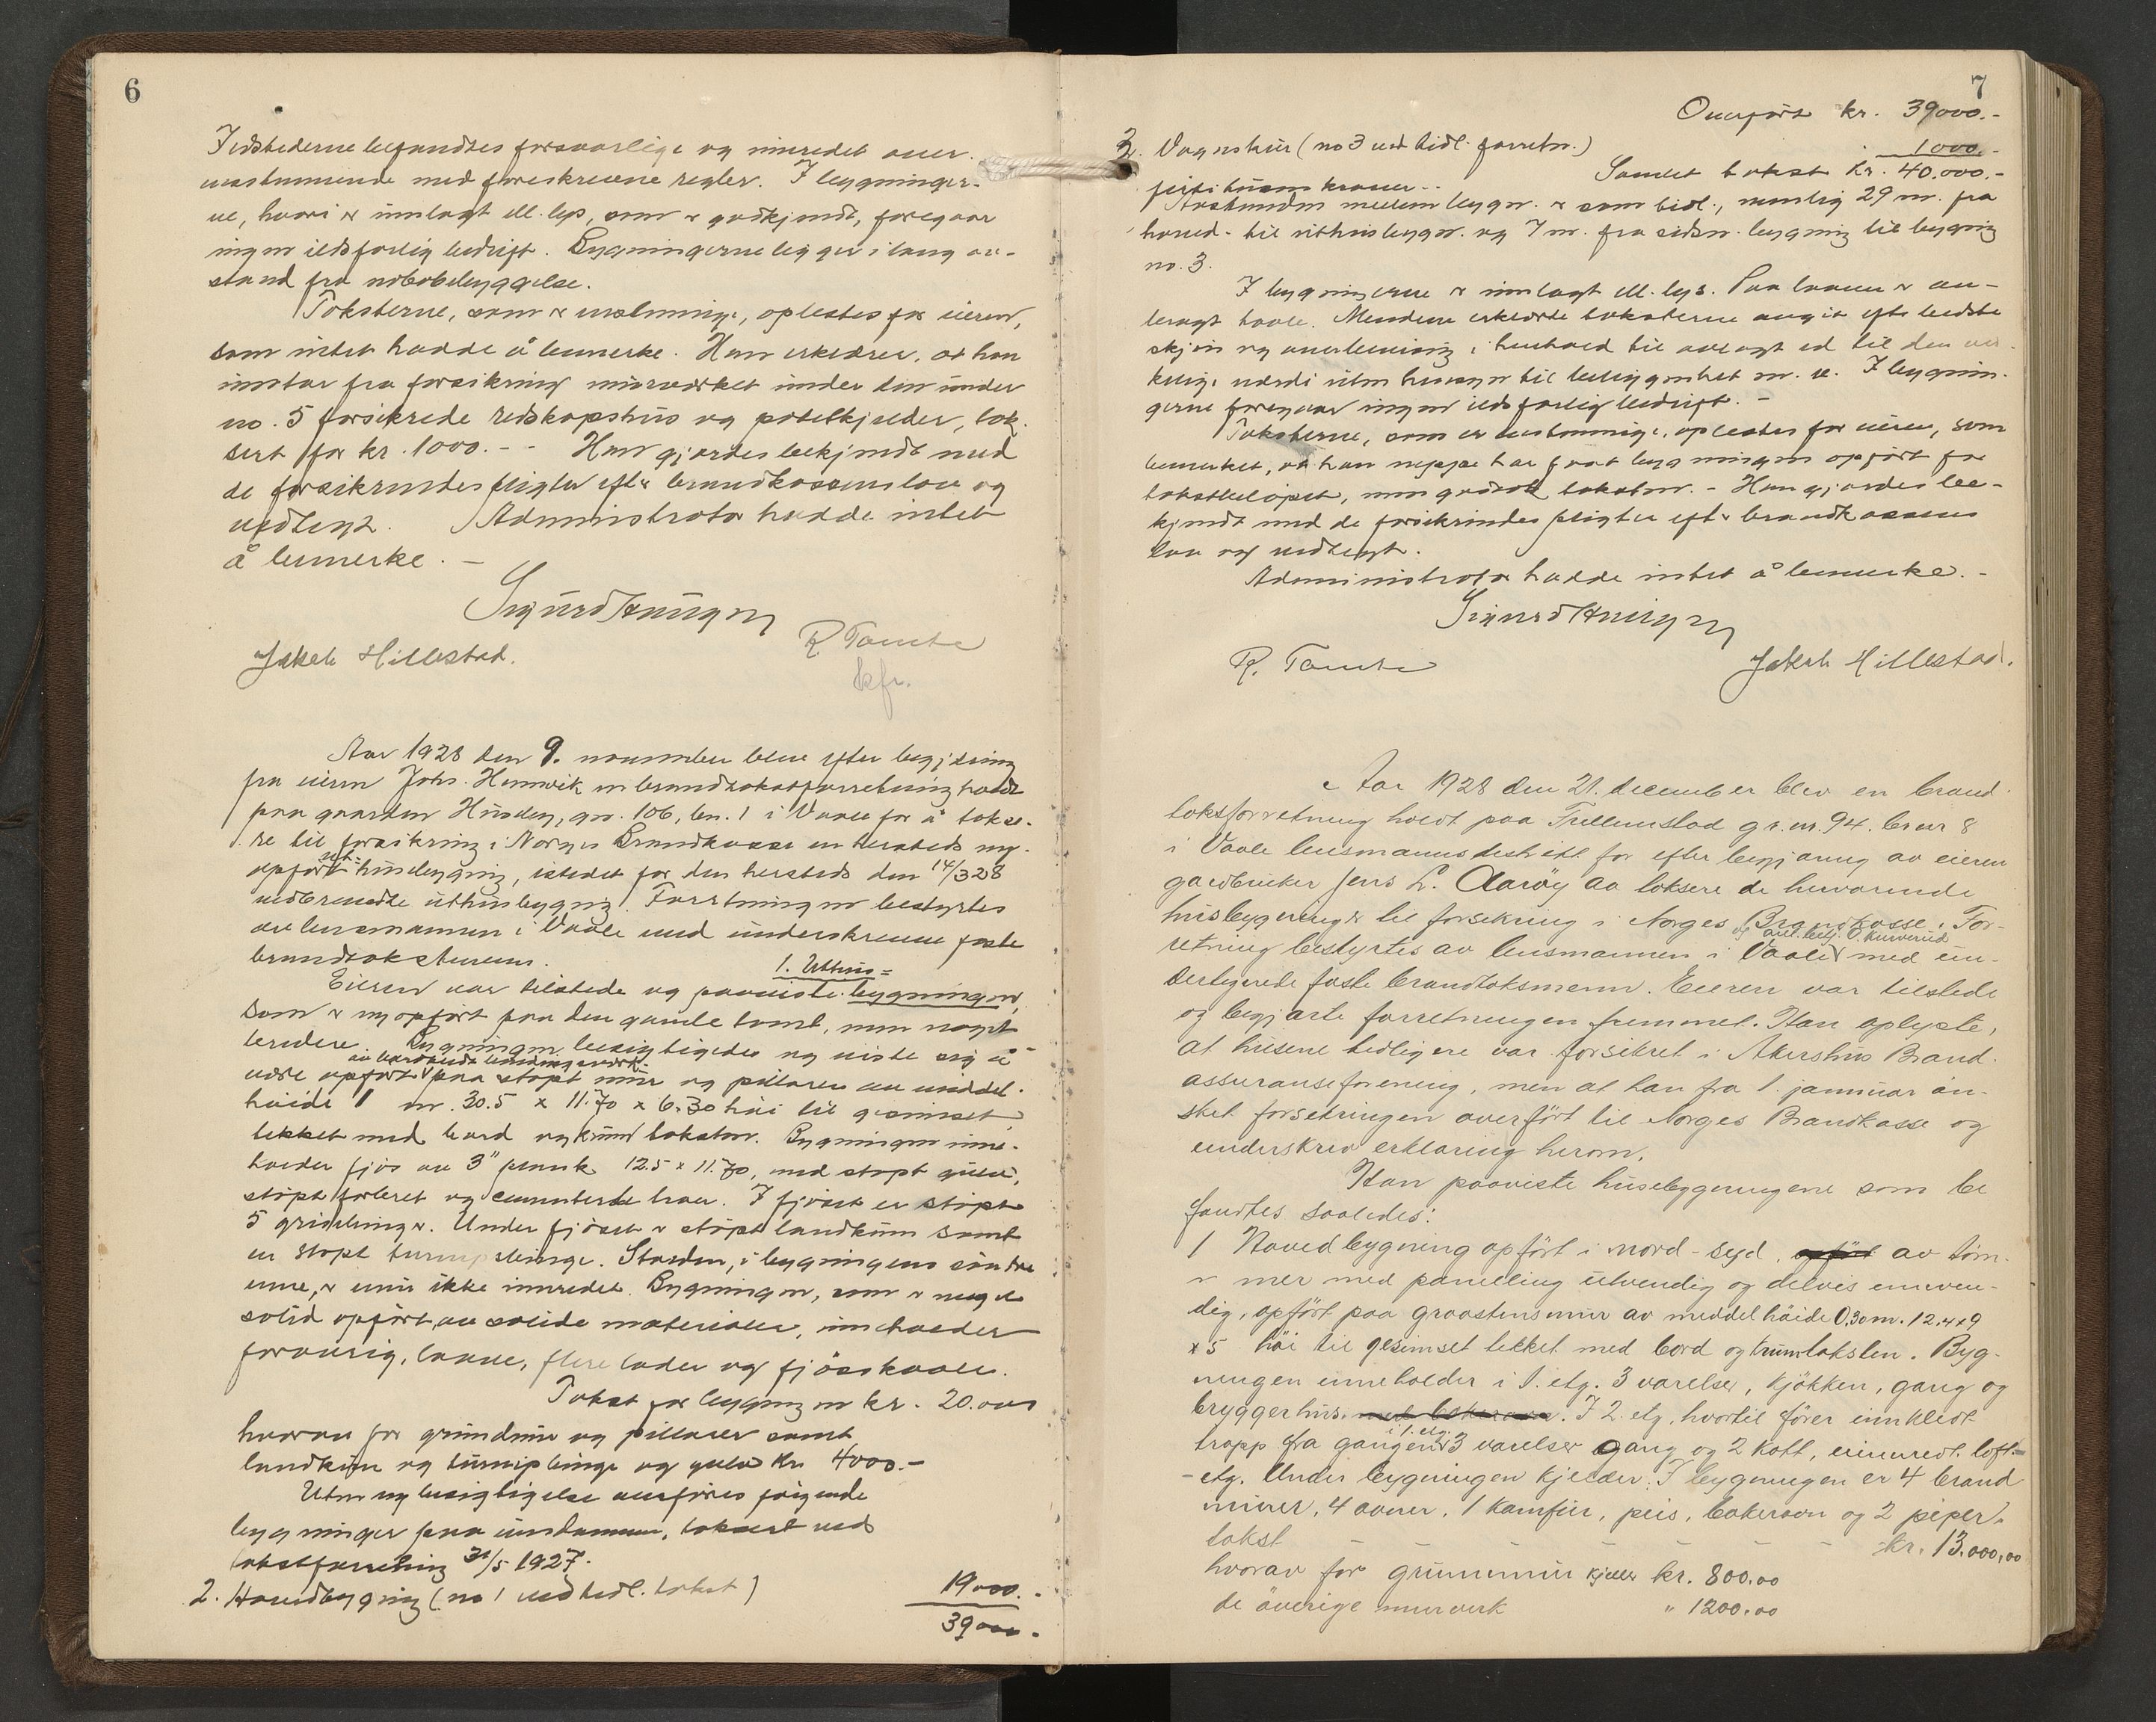 6
Ildstederne befandtes forsvarlige og innredet over-
ensstemmende med foreskrevne regler. I bygninger-
ne, hvori er innlagt el. lys, som er godkjendt, foregaar
ingen ildsfarlig bedrift. Bygningerne ligger i lang av-
stand fra nabobebyggelse.
Taksterne, som er enstemmige, oplestes for eieren,
som intet hadde å bemerke. Han erklærer, at han
inntar fra forsikring murverket under den under
no. 5 forsikrede redskapshus og potetkjelder, tak-
sert for kr. 1000.- - Han gjordes bekjendt med
de forsikredes pligter efter brandkassens lov og
vedtegt. Administrator hadde intet
å bemerke. -
Sigurd Haugen
R. Tamte
Jakob Hillestad.
kfr.
Aar 1928 den 9. november blev efter begjæring
fra eieren Johs. Hemvik en brandtakstforretning holdt
paa gaarden Huseby, gr. 106, bn. 1 i Vaale for å takse-
re til forsikring i Norges Brandkasse en hersteds ny-
opført uthusbygning, istedet for den hersteds den 14/3 28
nedbrendte uthusbygning. Forretningen bestyrtes
av lensmannen i Vaale med underskrevne faste
brandtakstmenn.
1. Uthus=
Eieren var tilstede og paaviste bygningen,
som er nyopført paa den gamle tomt, men noget
bredere. Bygningen besigtigedes og viste sig å
av bordkledd bindingsverk
være opført paa støpt mur og pillarer av middel-
høide 1 m. 30.5 x 11.70 x 6.30 høi til gesimset,
tekket med bord og krum taksten. Bygningen inne-
holder fjøs av 3" plank 12.5 x 11.70, med støpt gulv,
støpt forbret og cementerte baser. I fjøset er støpt
5 grisebinger. Under fjøset er støpt landkum samt
en støpt turnipsbinge. Stalden, i bygningens søndre
ende, er ennu ikke innredet. Bygningen, som er meget
solid opført av solide materialer, inneholder
forøvrig, laave, flere lader og fjøsskaale.
Takst for bygningen kr. 20.000
hvorav for grundmur og pillarer samt
landkum og turnipsbinge og gulv kr. 4000.-
Uten ny besigtigelse anføres følgende
bygninger paa eiendommen, taksert ved
takstforretning 31/5 1927.
2. Hovedbygning (no 1 ved tidl. takst) 19000.-
39000.-
7
Overført kr. 39000.-
3. Vognskur (no 3 ved tidl. forretn.) 1000.-
Samlet takst kr. 40.000.-
førti tusen kroner - -
Avstanden mellem bygn. er som tidl., nemlig 29 m. fra
hoved- til uthusbygn. og 7 m. fra sidsn. bygning til bygning
no. 3.
I bygningerne er innlagt el. lys. Paa laaven er an-
bragt tavle. Mendene erklærte taksterne angit efter bedste
skjøn og overbevisning i henhold til avlagt ed til den vir-
kelige værdi uten hensyn til beliggenhet m. v. I bygnin-
gerne foregaar ingen ildsfarlig bedrift. -
Taksterne, som er enstemmige, oplestes for eieren, som
bemerket, at han neppe har faat bygningen opført for
takstbeløpet, men godtok taksten. - Han gjordes be-
kjendt med de forsikredes pligter efter brandkassens
lov og vedtegt.
Administrator hadde intet å bemerke. -
Sigurd Haugen
R. Tamte
Jakob Hillestad.
Aar 1928 den 21. december blev en brand-
taksforretning holdt paa Fullumstad gr. nr. 94. br nr 8
i Vaale lensmannsdistrikt for efter begjæring av eieren
gardbruker Jens L. Aarøy aa taksere de herværende
husbygninger til forsikring i Norges Brandkasse. For-
retning bestyrtes av lensmannen i Vaale med un-
dertegnede faste brandtaksmenn. Eieren var tilstede
og begjærte forretningen fremmet. Han oplyste,
at husene tidligere var forsikret i Akershus Brand-
assuranseforening, men at han fra 1. januar øn-
sket forsikringen overført til Norges Brandkasse og
underskrev erklæring herom.
Han paaviste husebygningene som be
fandtes saaledes:
1 Hovedbygning opført i nord-syd, opført av tøm-
mer med panelling utvendig og delvis innven-
dig, opført paa graastensmur av meddelhøide 0.30 m. 12.4 x 9
x 5 høi til gesimset tekket med bord og krumtaksten. Byg-
ningen inneholder i 1. etg. 3 værelser, kjøkken, gang og
bryggerhus, med bakerovn. I 2. etg, hvortil fører innkledt
trapp fra gangen i 1. etg. 3 værelser gang og 2 kott, uinnredt. loft=
-etg. Under bygningen kjelder. I bygningen er 4 brand
murer, 4 ovner, 1 kamfur, peis, bakerovn og 2 piper.
takst - - - - - kr. 13.000,00
hvorav for grunnmur kjeller kr. 800.00
de øvrige murverk " 1200.00